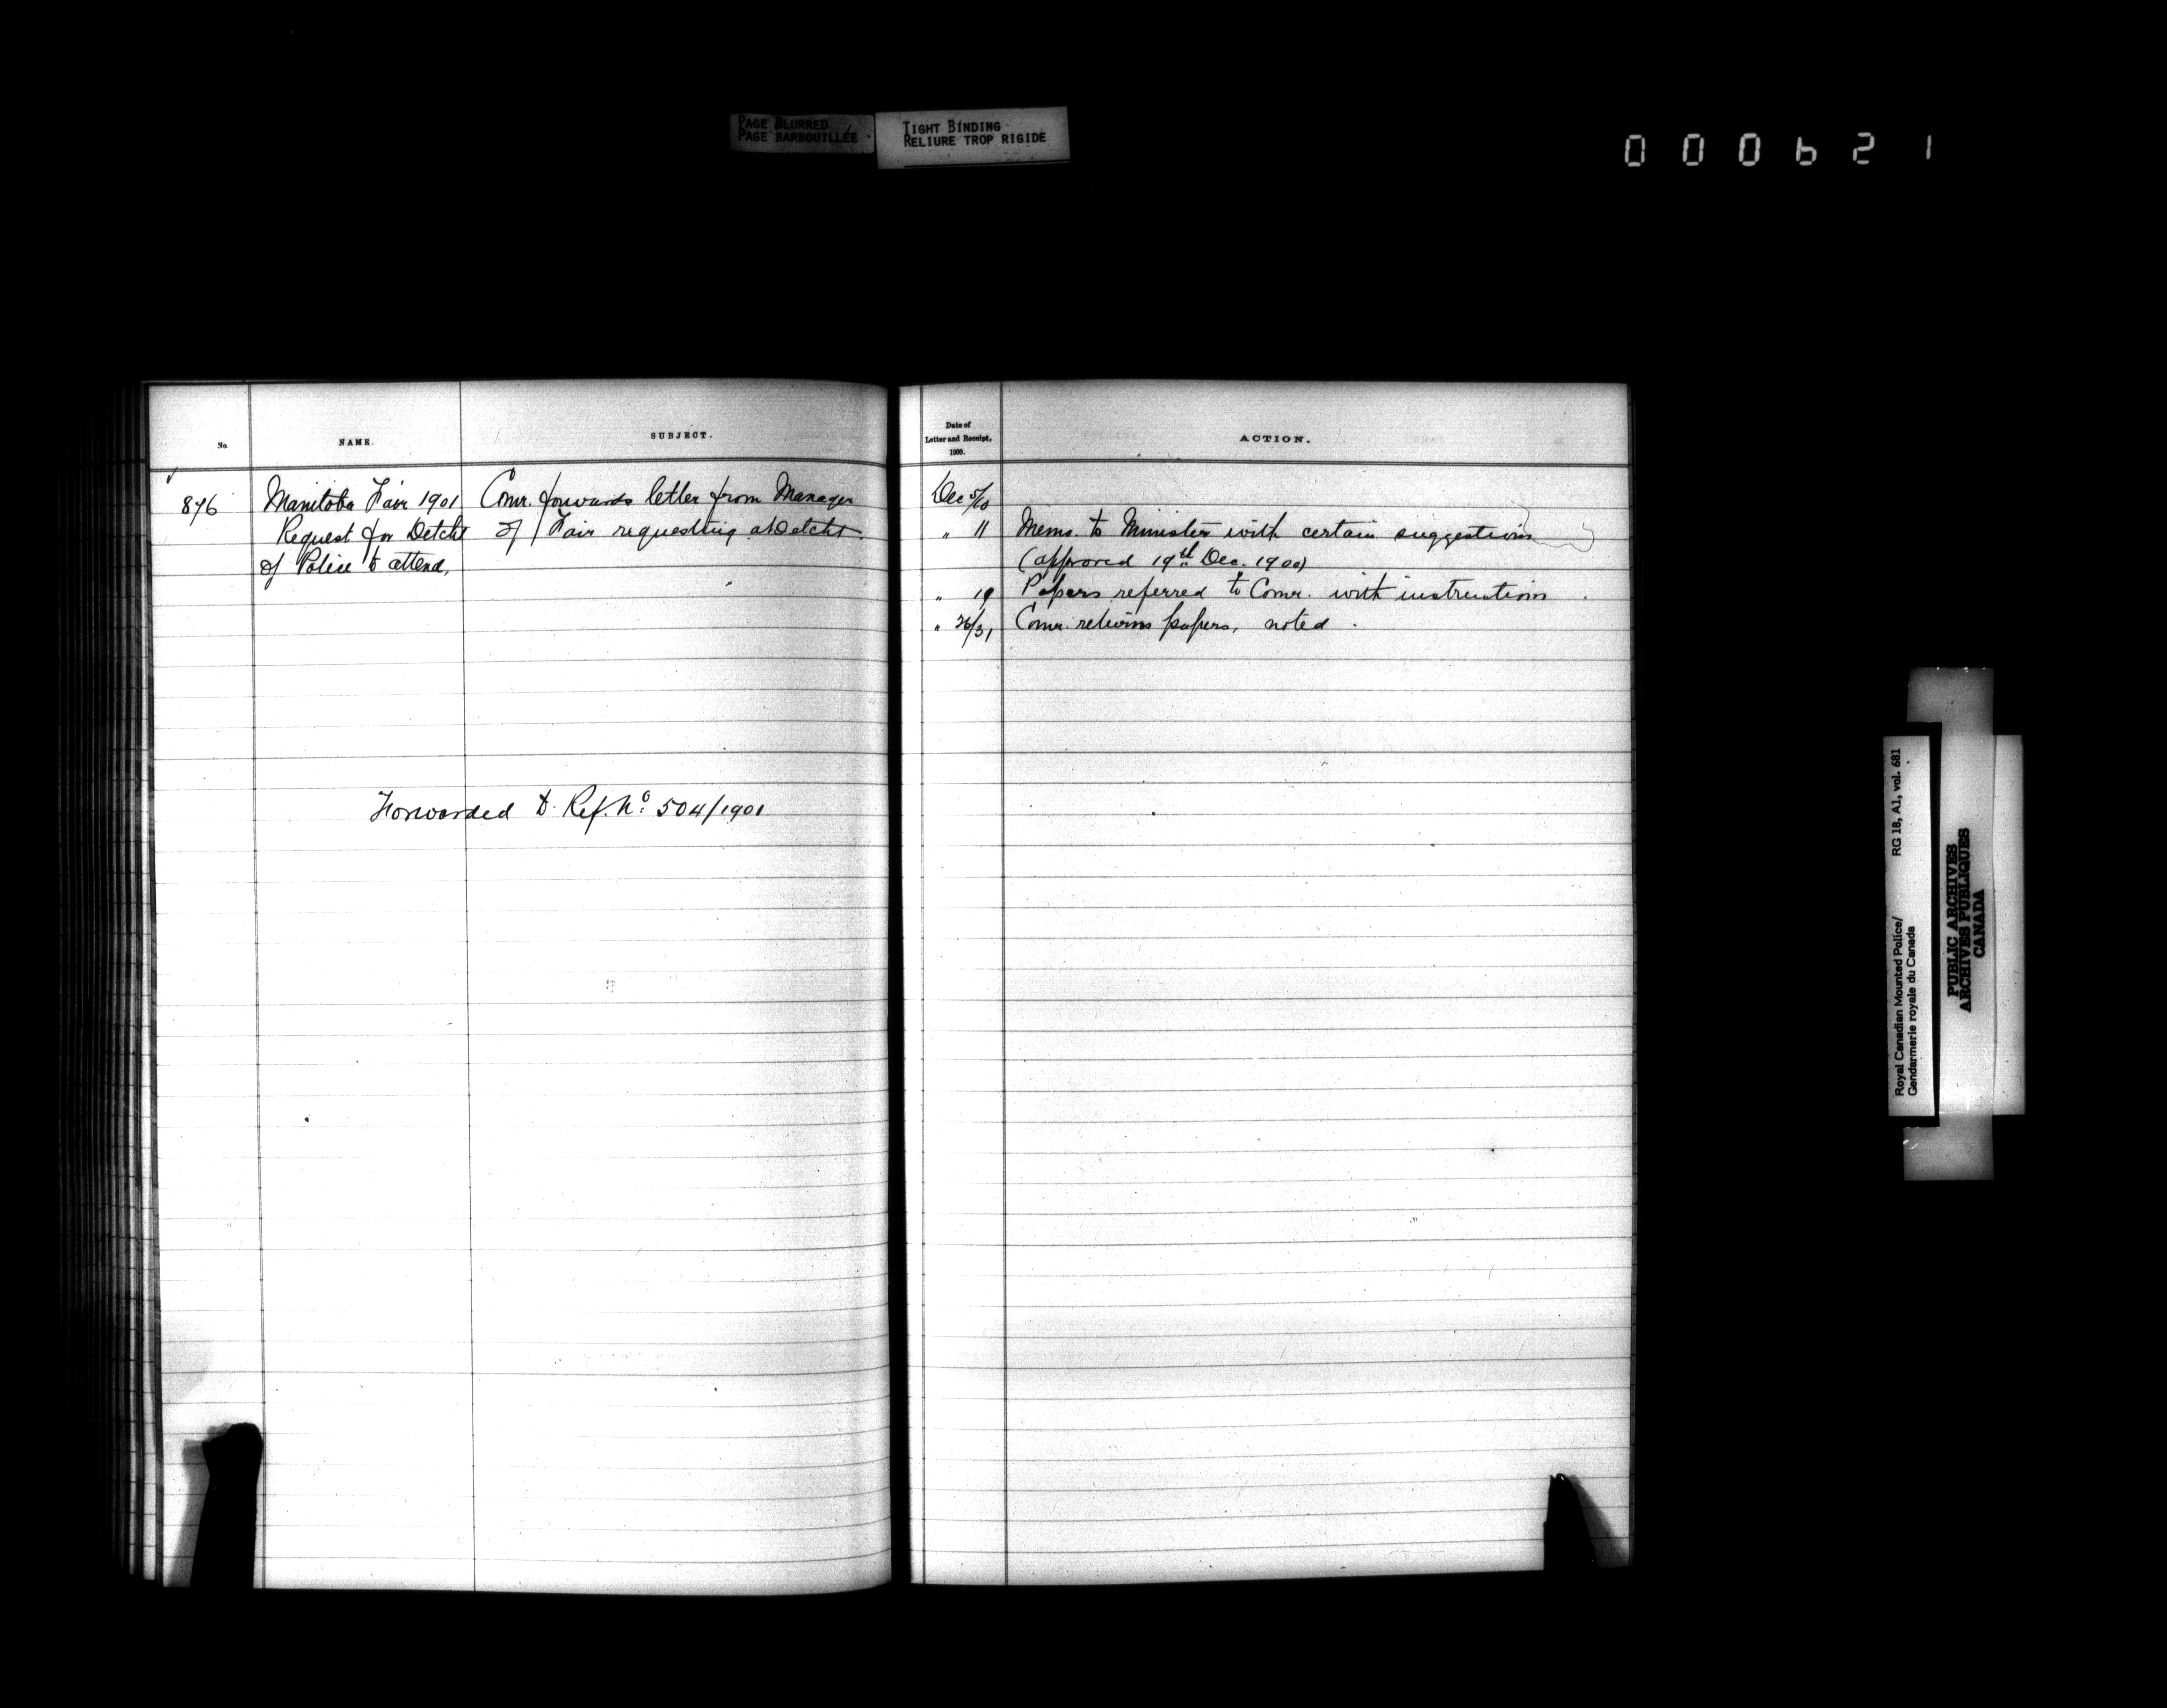 PAGE BLURRED
PAGE BARBOUILLÉE
TIGHT BINDING
RELIURE TROP RIGIDE
000621
No
NAME.
SUBJECT.
Date of
Letter and Receipt,
1900.
ACTION.
876
Manitoba Fair 1901
Request for Detcht
of Police to attend,
Comr. forwards letter from Manager
of Fair requesting a Detcht.
Forwarded to Ref. No. 504/1901
Dec 5/10
" 11 Memo. to Minister with certain suggestions
(approved 19th Dec. 1900)
" 19 Papers referred to Comr. with instructions.
" 26/31 Comr. returns papers, noted.
Royal Canadian Mounted Police/ RG 18, A1, vol. 681
Gendarmerie royale du Canada
PUBLIC ARCHIVES
ARCHIVES PUBLIQUES
CANADA